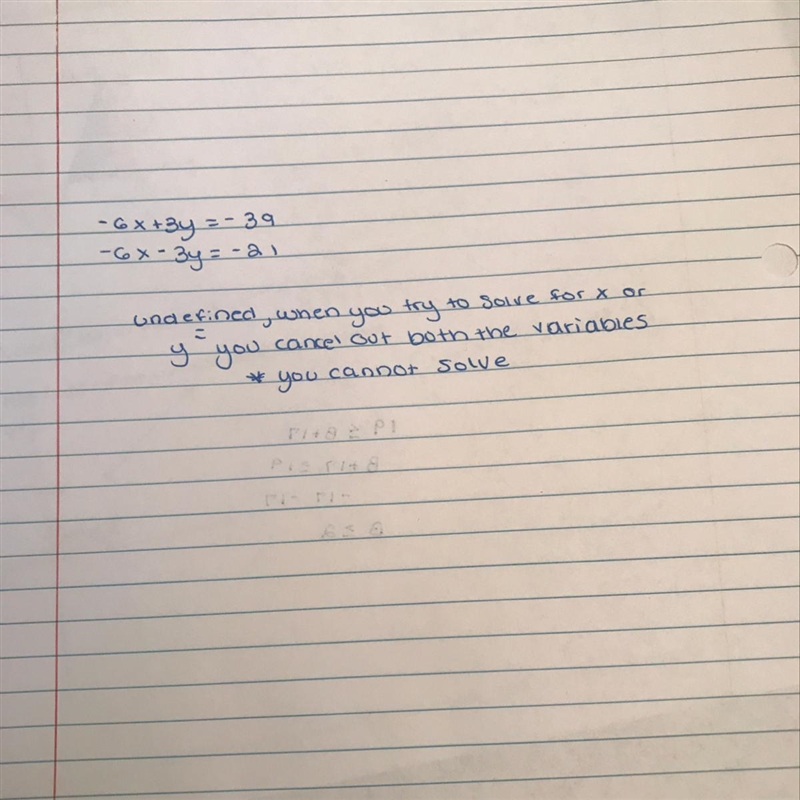 -6x+3y=-39
-6x-3y=-21
undefined, when you try to solve for x or
y = you cancel out both the variables
* you cannot solve